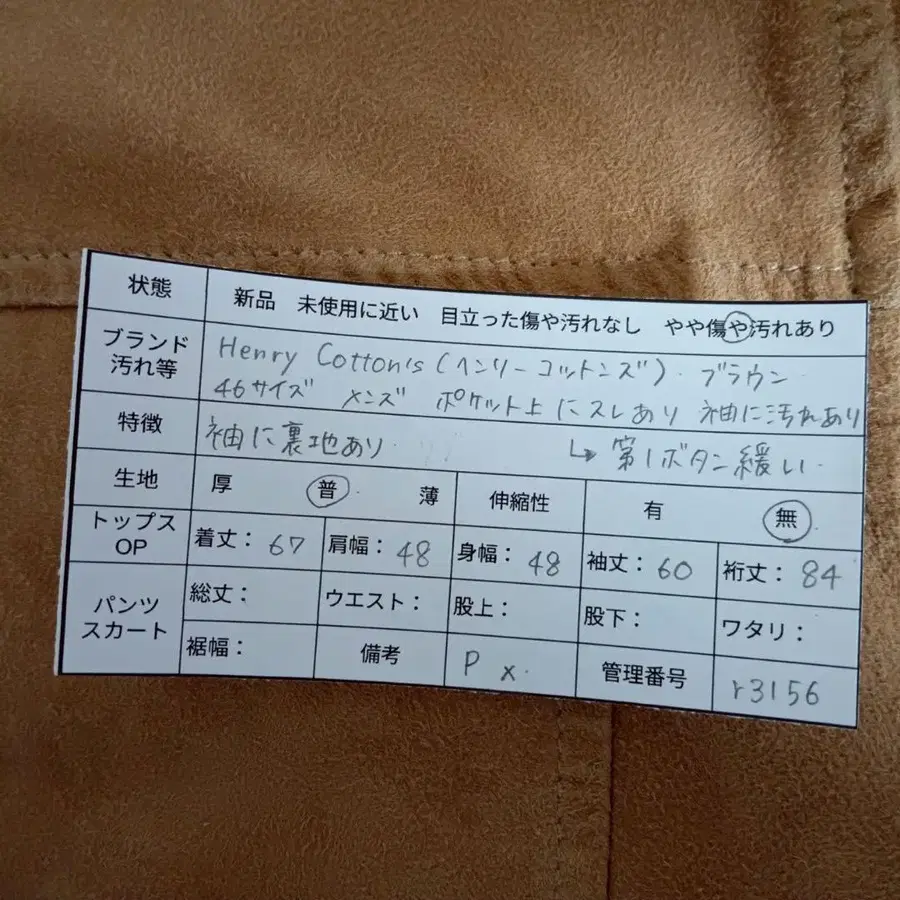 状態 新品 未使用に近い 目立った傷や汚れなし やや傷や汚れあり
ブランド 汚れ等 Henry Cotton's (ヘンリーコットンズ). ブラウン
46サイズ メンズ ポケット上にスレあり 袖に汚れあり
特徴 袖に裏地あり ↳ 第1ボタン緩い
生地 厚 普 薄 伸縮性 有 無
トップス OP 着丈: 67 肩幅: 48 身幅: 48 袖丈: 60 裄丈: 84
パンツ スカート 総丈: ウエスト: 股上: 股下: ワタリ:
裾幅: 備考 P x. 管理番号 r3156